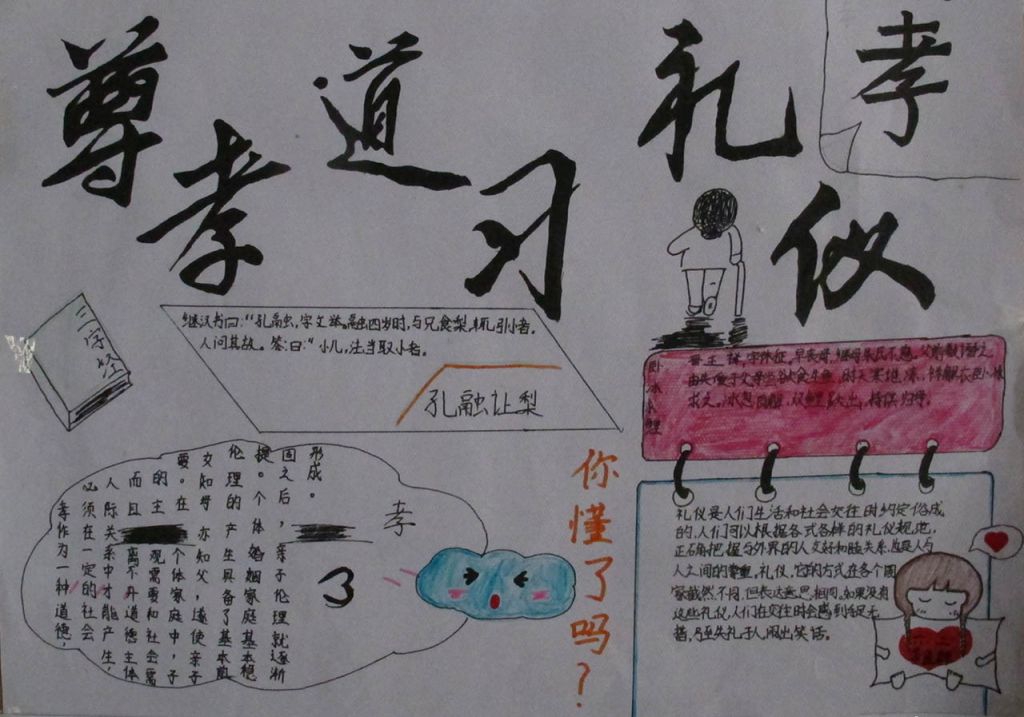 尊孝道习礼仪
孝
三字经
继汉书曰:“孔融,字文举。融四岁时,与兄食梨,辄引小者。
人问其故。答曰:“小儿,法当取小者。
孔融让梨
卧冰求鲤
晋王祥,字休征,早丧母,继母朱氏不慈。父前数谮之,
由失爱于父母尝欲食生鱼,时天寒地冻,祥解衣卧冰
求之。冰忽自解,双鲤跃出,持归
孝
孝作为一种道德,
必须在一定的社会
人际关系中才能产生,
而且 离不开道德主体
的主 观需要和社会需
要。在 个体家庭中,子
女知母 亦知父,遂使亲子
伦理的产生具备了基本前
提。个体婚姻家庭基本稳
固之后,亲子伦理就逐渐
形成。
3
你懂了吗?
礼仪是人们生活和社会交往时约定俗成
的,人们可以根据各式各样的礼仪规范,
正确把握与外界的人交好和睦关系,也是人与
人之间的尊重。礼仪,它的方式在各个国
家截然不同,但表达意思相同,如果没有
这些礼仪,人们在交往时会感到手足无
措,乃至失礼于人,闹出笑话。